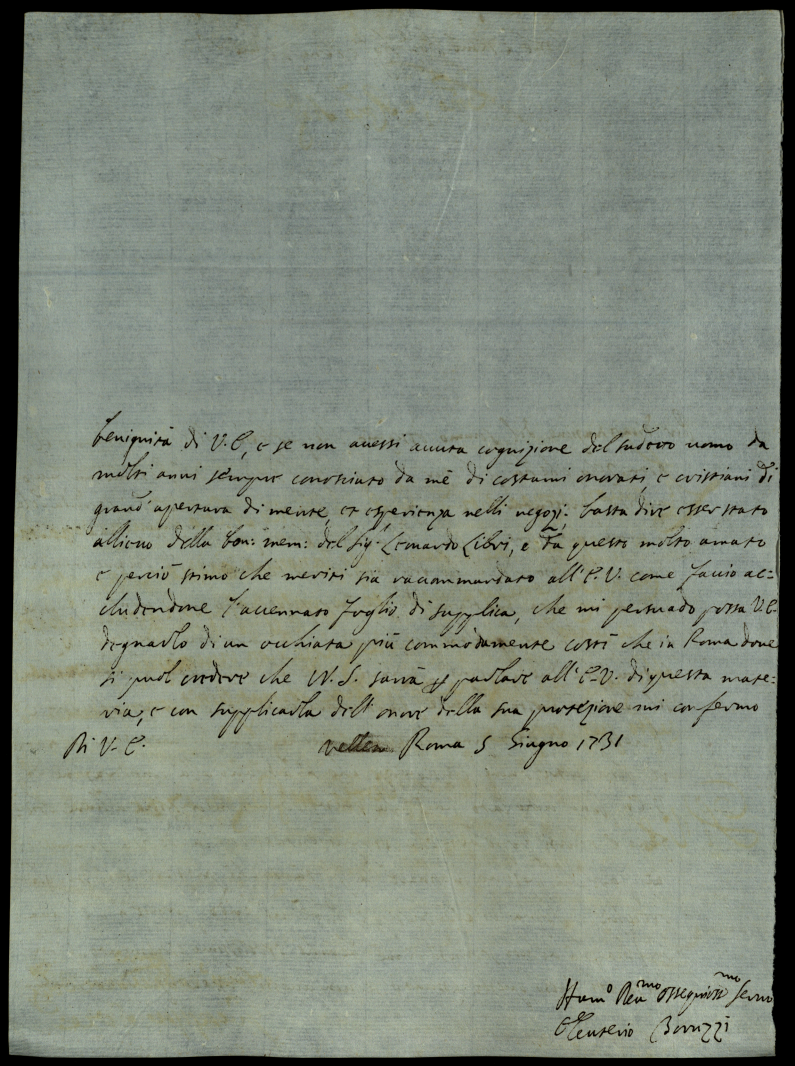 benignità di V. E, e se non avessi avuta cognizione del sudetto uomo da
molti anni sempre conosciuto da mè di costumi onorati, e cristiani di
grand' apertura di mente, et esperienza nelli negozj. basta dire esser stato
allievo della bon: mem: del Sig.r Leonardo Libri, e da questo molto amato
e perciò stimo che meriti sia raccommandato all' E. V. come faccio ac=
cludendone l'accennato foglio di supplica, che mi persuado possa V. E.
degnarlo di un occhiata più commodamente costì che in Roma dove
si puol credere che N. S. sarà p parlare all' E. V. di questa mate=
ria, e con supplicarla dell' onore della sua protezione mi confermo
Di V. E. Roma 5 Giugno 1731
Hum.o Dev.mo Ossequios.mo Servo
Eleuterio Boruzzi